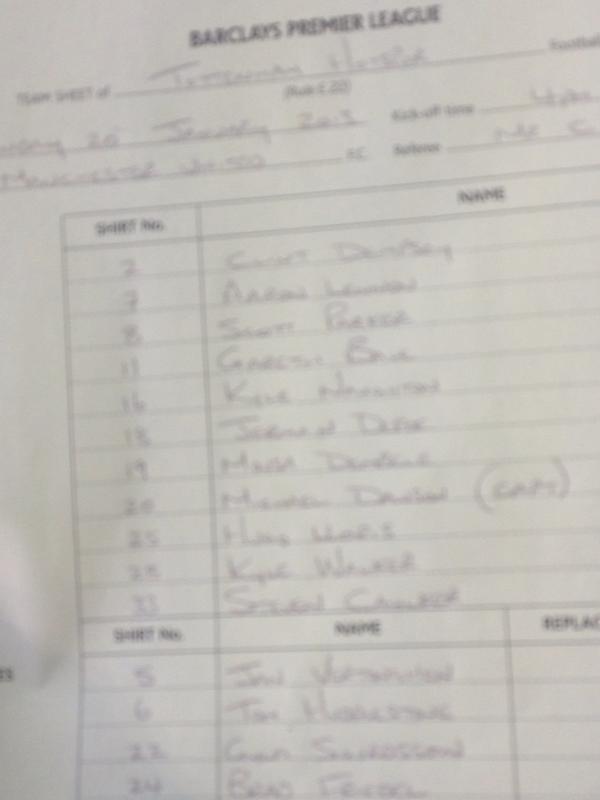 BARCLAYS PREMIER LEAGUE
TEAM SHEET of Tottenham Hotspur Football
(Rule E.22)
20 January 2013 Kick-off time 4pm
Manchester United FC Referee Mr C
SHIRT No. NAME
2 Clint Dempsey
7 Aaron Lennon
8 Scott Parker
11 Gareth Bale
16 Kyle Naughton
18 Jermain Defoe
19 Mousa Dembele
20 Michael Dawson (Capt)
25 Hugo Lloris
28 Kyle Walker
33 Steven Caulker
SHIRT No. NAME REPLAC
5 Jan Vertonghen
6 Tom Huddlestone
22 Gylfi Sigurdsson
24 Brad Friedel